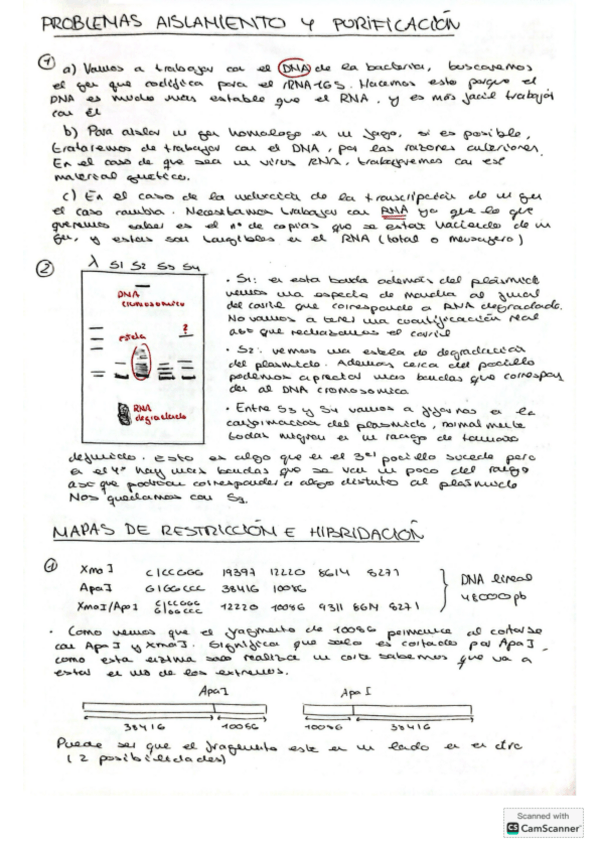 PROBLEMAS AISLAMIENTO Y PURIFICACIÓN
① a) Vamos a trabajar con el DNA de la bacteria, buscaremos
el gen que codifica para el rRNA 16S. Hacemos esto porque el
DNA es mucho más estable que el RNA, y es más fácil trabajar
con él
b) Para aislar un gen homólogo en un fago, si es posible,
trataremos de trabajar con el DNA, por las razones anteriores.
En el caso de que sea un virus RNA, trabajaremos con ese
material genético.
c) En el caso de la inducción de la transcripción de un gen
el caso cambia. Necesitamos trabajar con RNA ya que lo que
queremos saber es el nº de copias que se están haciendo de un
gen, y estas son tangibles en el RNA (total o mensajero)
②
λ S1 S2 S3 S4
DNA
cromosomico
estela
?
RNA
degradado
• S1: en esta banda además del plásmido
vemos una especie de mancha al final
del carril que corresponde a RNA degradado.
No vamos a tener una cuantificación real
así que rechazamos el carril
• S2: vemos una estela de degradación
del plásmido. Además cerca del pocillo
podemos apreciar unas bandas que correspon
den al DNA cromosomico
• Entre S3 y S4 vamos a fijarnos en la
conformación del plásmido, normalmente
todas migran en un rango de tamaño
definido. Esto es algo que en el 3er pocillo sucede pero
en el 4º hay unas bandas que se van un poco del rango
así que podrían corresponder a algo distinto al plásmido
Nos quedamos con S3.
MAPAS DE RESTRICCIÓN E HIBRIDACIÓN
① XmaI C/CCGGG 19397 12220 8614 8271
ApaI G/GGCCC 38416 10086
XmaI/ApaI C/CCGGG G/GGCCC 12220 10086 9311 8614 8271
DNA lineal
48000pb
• Como vemos que el fragmento de 10086 permanece al cortarse
con ApaI y XmaI. Significa que solo es cortado por ApaI,
como esta enzima solo realiza un corte sabemos que va a
estar en uno de los extremos.
ApaI ApaI
38416 10086 10086 38416
Puede ser que el fragmento esté en un lado o en otro
(2 posibilidades)
Scanned with
CS CamScanner